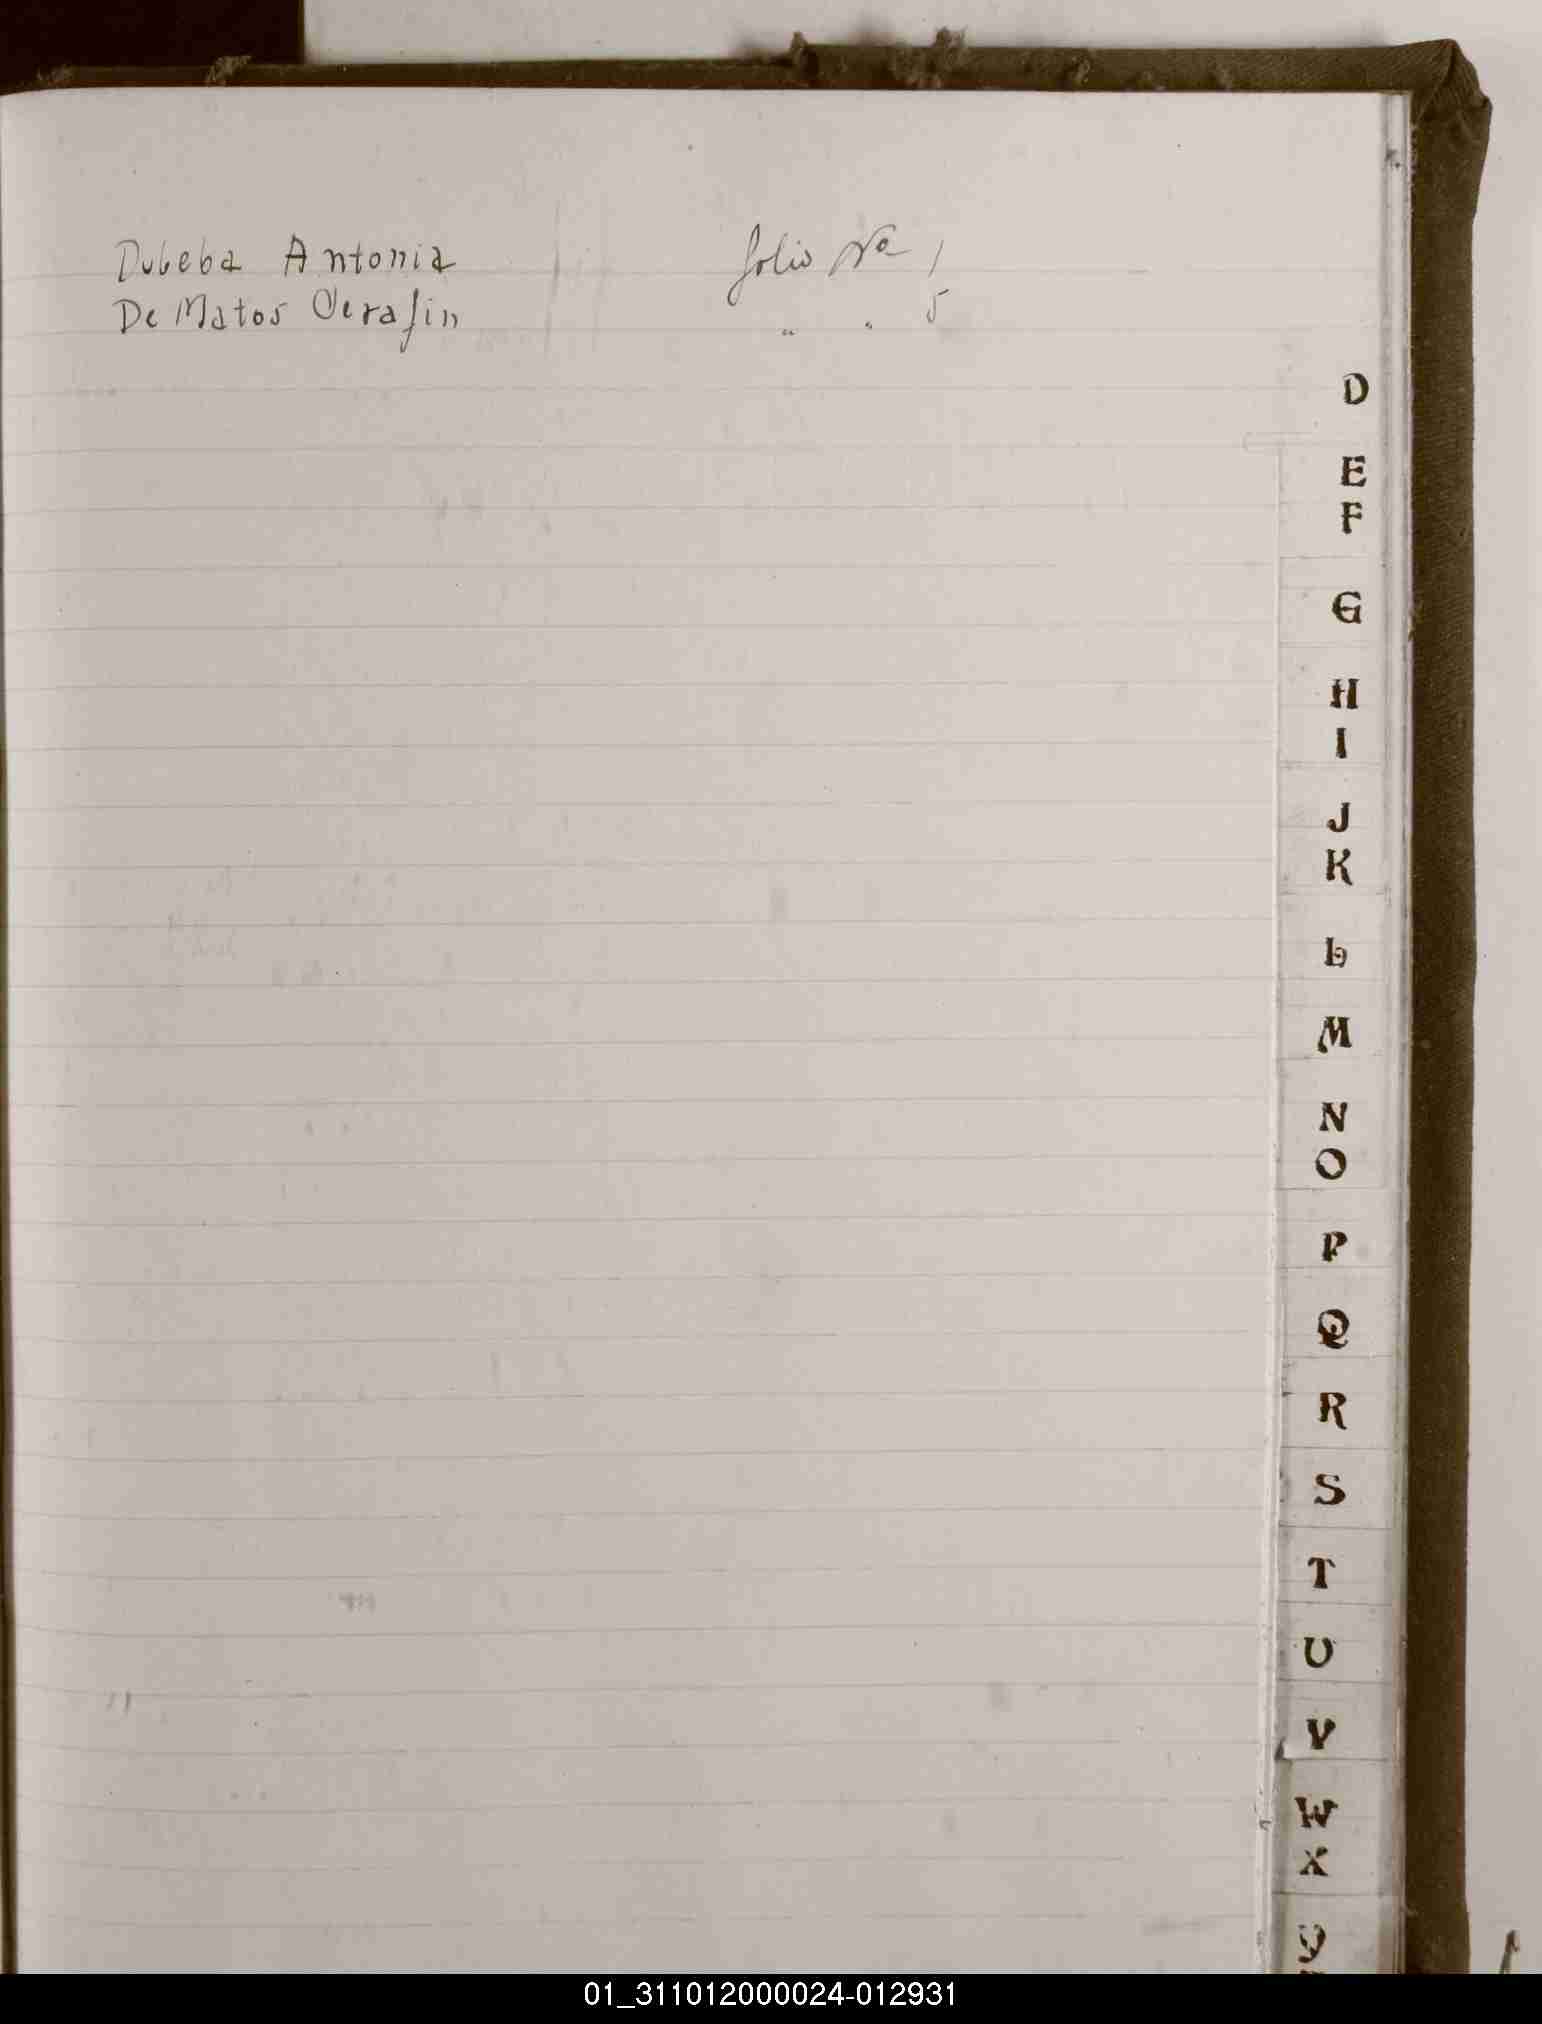 Dubeba Antonia folio Nº 1
De Matos Serafin " " 5
D
E
F
G
H
I
J
K
L
M
N
O
P
Q
R
S
T
U
V
W
X
Y
01_311012000024-012931